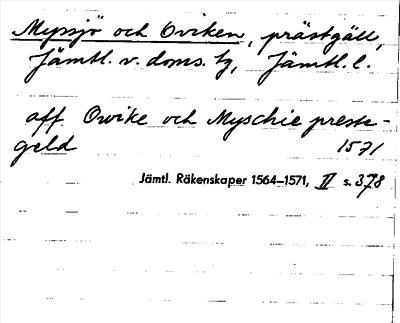 Mypsjö och Oviken, prästgäll,
Jämtl. v. doms. tg, Jämtl. l.
aff. Owike och Myschie preste-
geld 1571
Jämtl. Räkenskaper 1564–1571, II s. 378